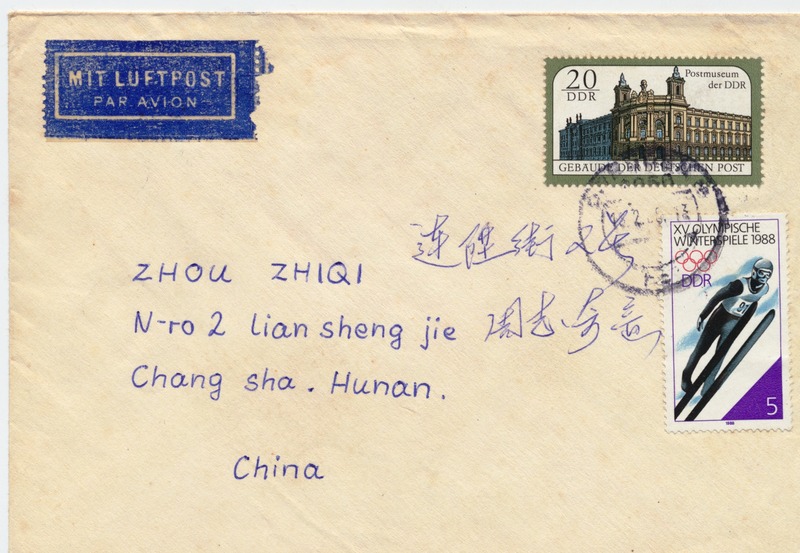 MIT LUFTPOST
PAR AVION
20
DDR
Postmuseum
der DDR
GEBÄUDE DER DEUTSCHEN POST
XV. OLYMPISCHE
WINTERSPIELE 1988
DDR
5
1988
ZHOU ZHIQI
N-ro 2 lian sheng jie 周志奇
Chang sha. Hunan.
China